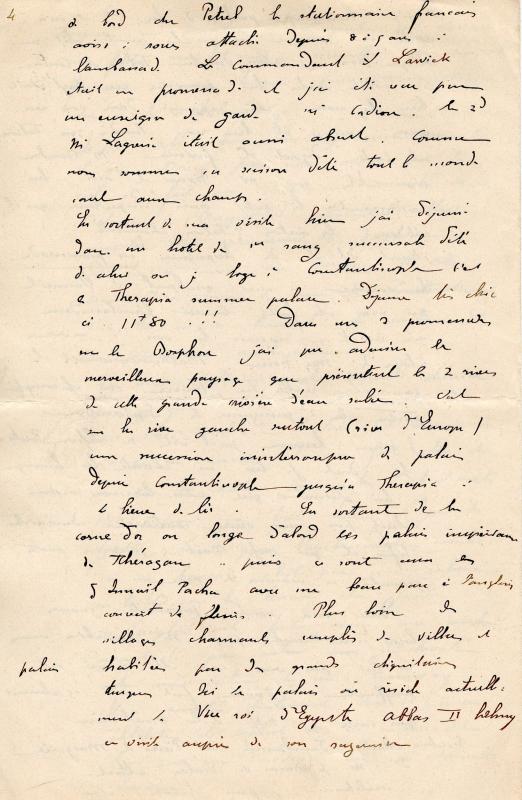 4
à bord du Petrel le stationnaire français
aviso à roues attaché depuis 8 à 9 ans à
l'ambassade. Le Commandant
était en promenade et j'ai été reçu par
un enseigne de garde Mr Cadiou. le 2d
Mr Lagrenée était aussi absent. Comme
nous sommes en saison d'été tout le monde
court aux champs.
En sortant de ma visite hier j'ai déjeuné
dans un hotel de 1er rang succursale d'été
de celui où je loge à Constantinople c'est
le Therapia summer palace. Déjeuner très chic
ci 11f 80 !!! Dans mes 2 promenades
sur le Bosphore j'ai pu admirer le
merveilleux paysage que présentent les 2 rives
de cette grande rivière d'eau salée. C'est
sur la rive gauche surtout (rive d'Europe)
une succession ininterrompue de palais
depuis Constantinople jusqu'à Therapia à
4 lieues de là. En sortant de la
corne d'or on longe d'abord les palais impériaux
de Théragan puis ce sont ceux
d'Ismaïl Pacha avec un beau parc à l'anglaise
couvert de fleurs. Plus loin des
villages charmants remplis de villas et
palais habités par de grands dignitaires
turques. Ici le palais où réside actuelle-
ment le Vice roi d'Egypte abbas II helmy
en visite auprès de son suzerain